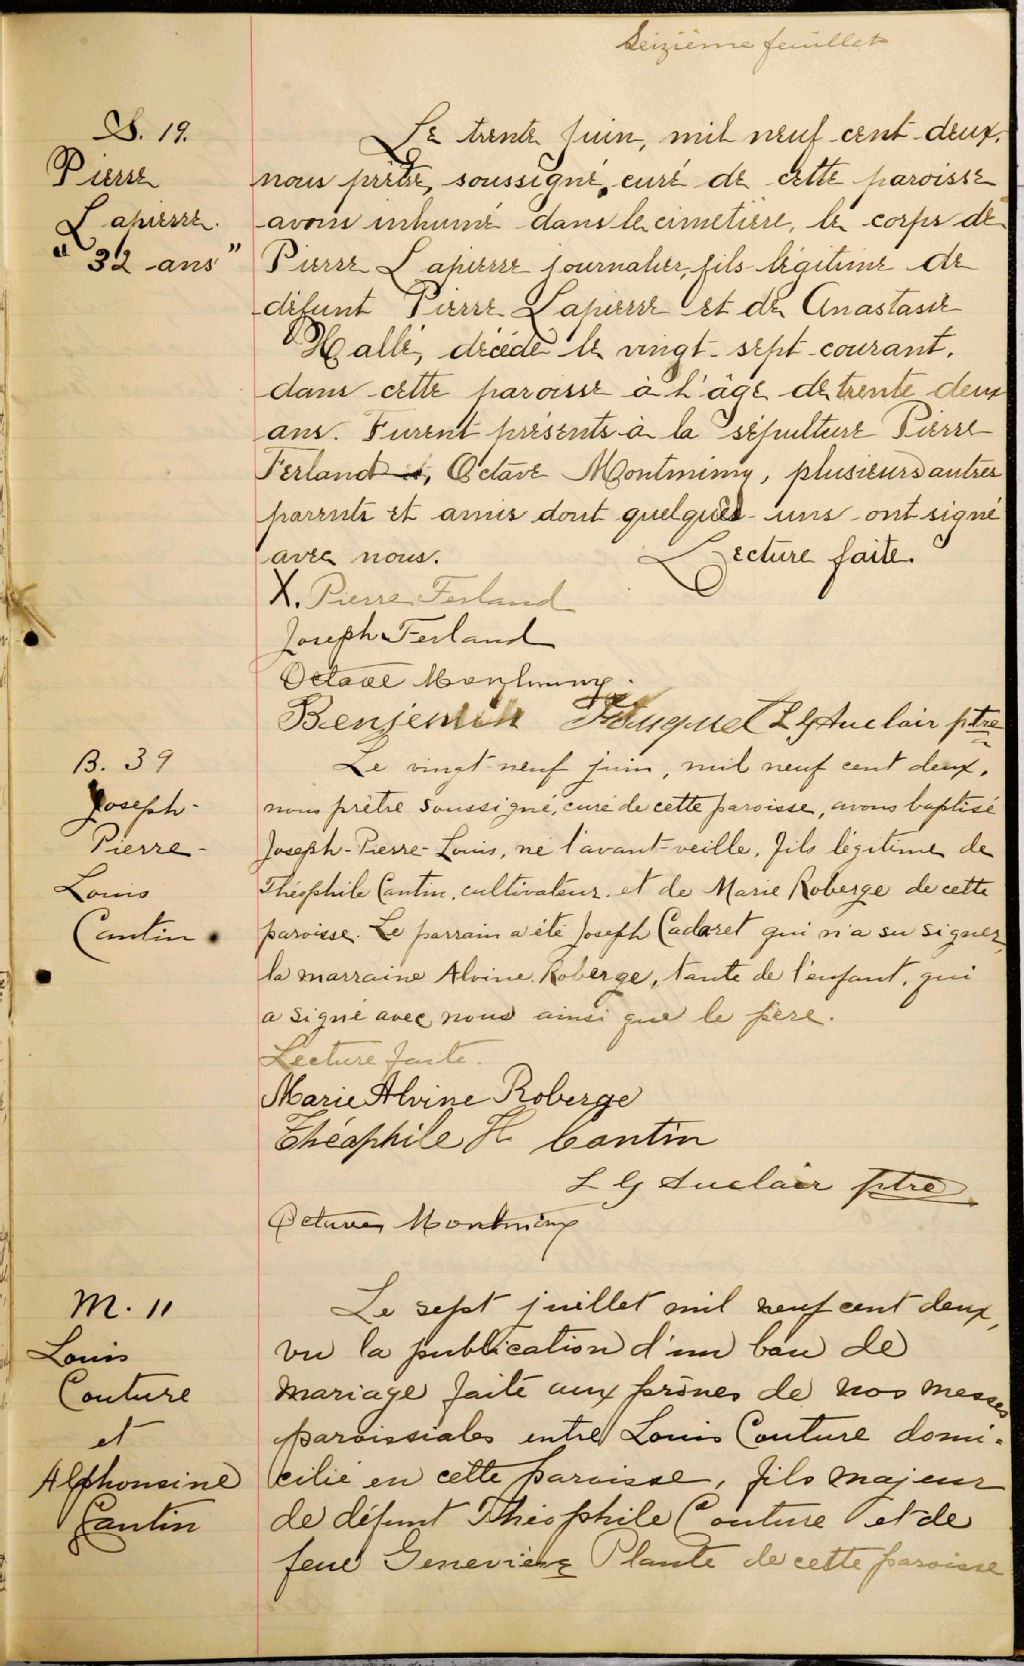 Seizième feuillet
S. 19.
Pierre
Lapierre.
"32 ans"
Le trente Juin, mil neuf cent deux,
nous prêtre, soussigné, curé de cette paroisse
avons inhumé dans le cimetière, le corps de
Pierre Lapierre journalier, fils légitime de
défunt Pierre Lapierre et de Anastasie
Hallé, décédé le vingt-sept courant,
dans cette paroisse à l'âge de trente deux
ans. Furent présents à la sépulture Pierre
Ferland, Octave Montminy, plusieurs autres
parents et amis dont quelques-uns ont signé
avec nous. Lecture faite.
X. Pierre Ferland
Joseph Ferland
Octave Montminy.
Benjemin Fouquet L G Auclair ptre
B. 39
Joseph-
Pierre-
Louis
Cantin
Le vingt-neuf juin, mil neuf cent deux,
nous prêtre soussigné, curé de cette paroisse, avons baptisé
Joseph-Pierre-Louis, né l'avant-veille, fils légitime de
Théophile Cantin, cultivateur et de Marie Roberge de cette
paroisse. Le parrain a été Joseph Cadoret qui n'a su signer,
la marraine Alvine Roberge, tante de l'enfant, qui
a signé avec nous ainsi que le père.
Lecture faite.
Marie Alvine Roberge
Théophile H Cantin
L G Auclair ptre
Octave Montminy
M. 11
Louis
Couture
et
Alphonsine
Cantin
Le sept juillet mil neuf cent deux,
vu la publication d'un ban de
mariage faite aux prônes de nos messes
paroissiales entre Louis Couture domi-
cilié en cette paroisse, fils majeur
de défunt Théophile Couture et de
feue Geneviève Plante de cette paroisse